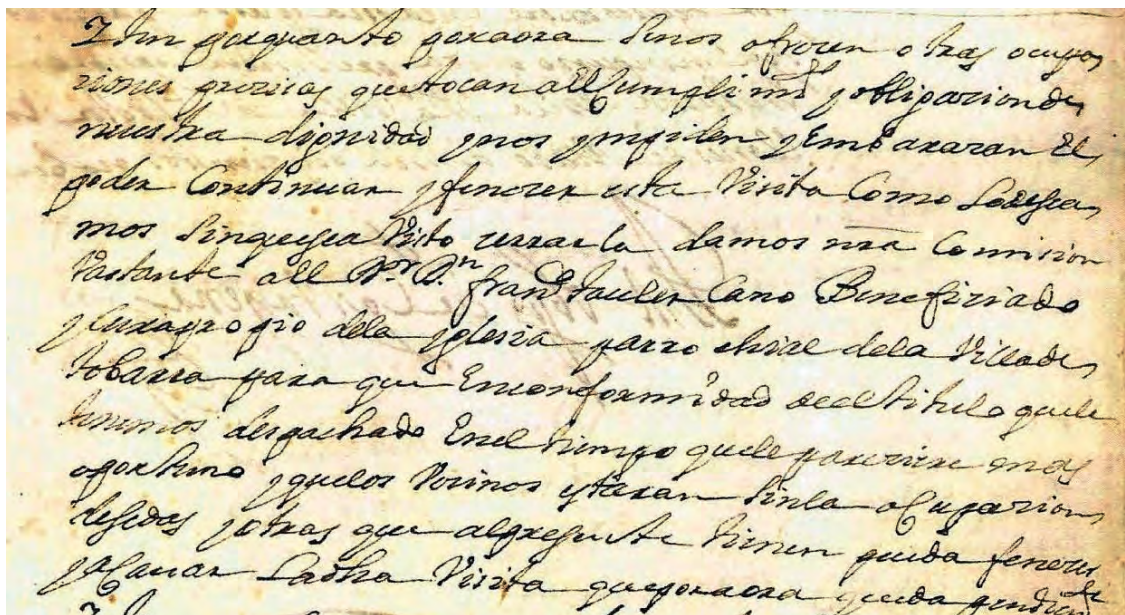 Itm porquanto por aora se nos ofrezen otras ocupa
ziones prezisas que tocan all Cumplimto y obligazion de
nuestra dignidad y nos ympiden y Embarazan El
poder Continuar y fenezer esta Visita Como Desea
mos sin que sea Visto zerrarla damos nra Comision
Vastante all Dr. Dn. Franco Cano Benefiziado
y Cura propio dela yglesia parrochial dela Villa de
tobarra para que En conformidad del titulo que le
tenemos despachado En el tiempo que le pareziere mas
oportuno y que los Vezinos estaran sin la ocupazion
y otras que al presente tienen pueda fenezer
y acavar La dha Visita que por aora queda